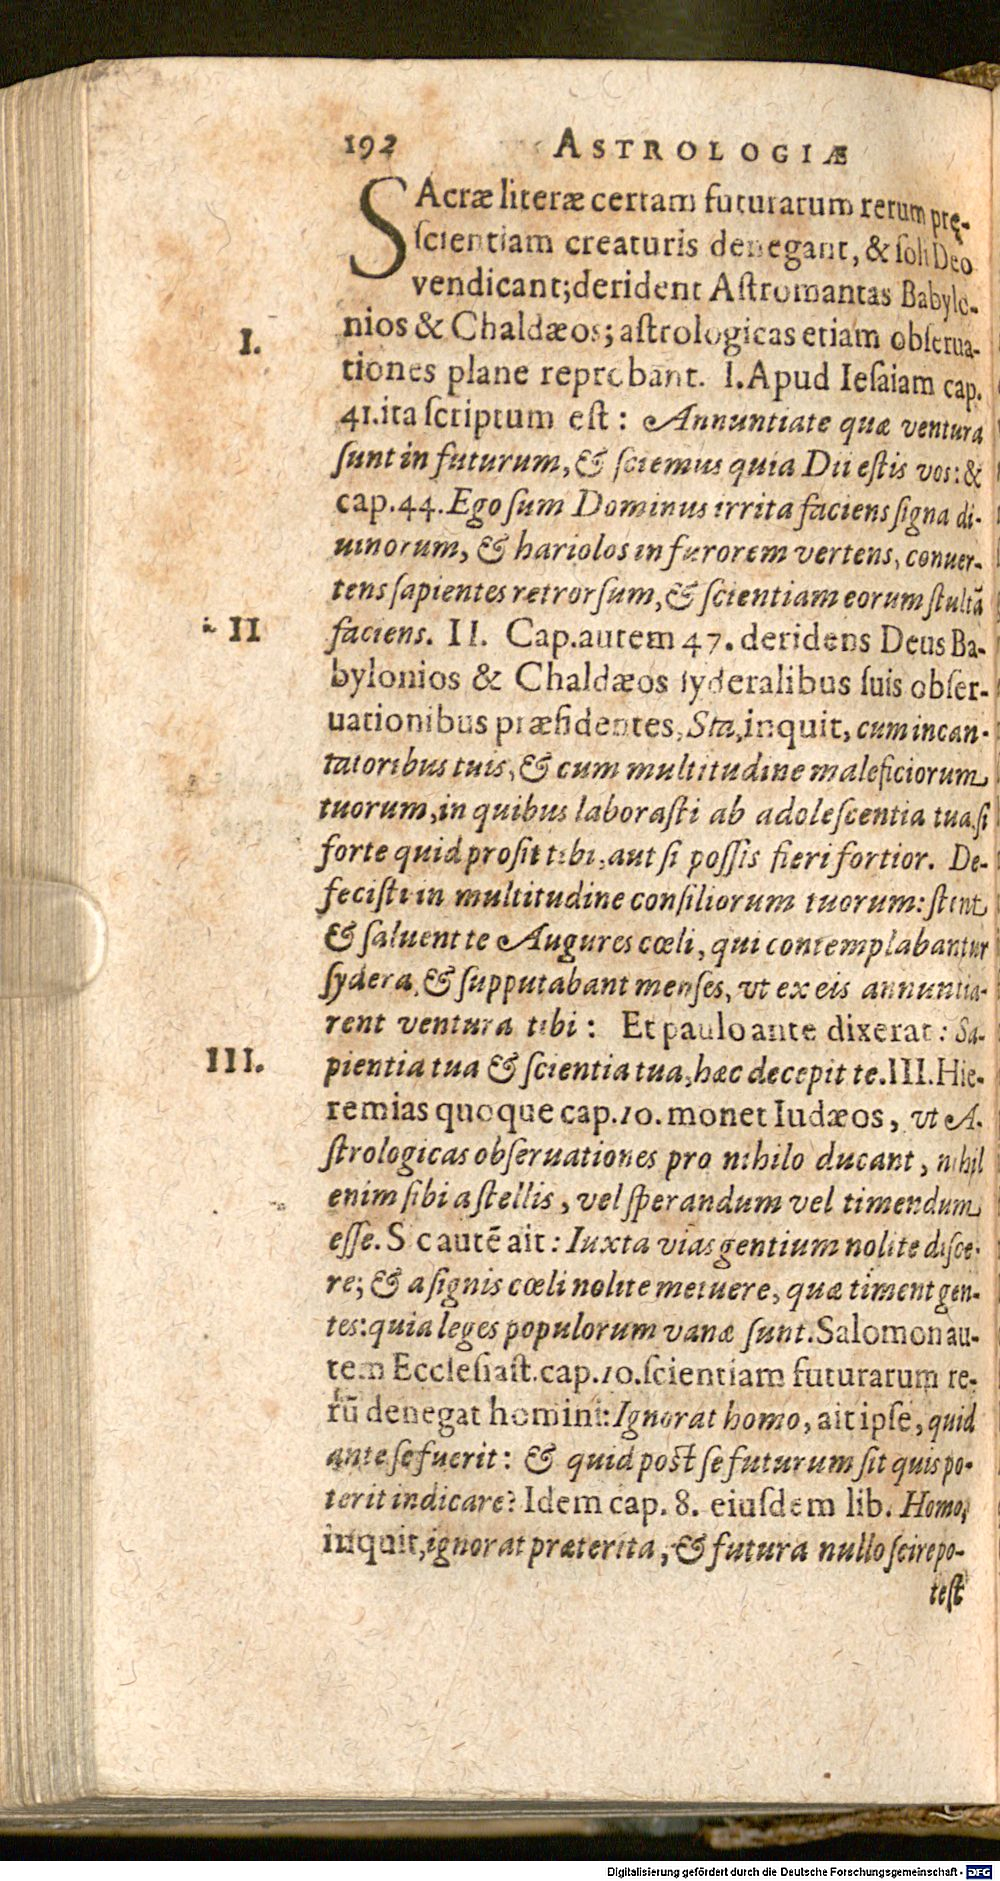 192 ASTROLOGIÆ
SAcræ literæ certam futurarum rerum prę-
scientiam creaturis denegant, & soli Deo
vendicant; derident Astromantas Babylo-
I.
nios & Chaldæos; astrologicas etiam obserua-
tiones plane reprobant. I. Apud Iesaiam cap.
41. ita scriptum est: Annuntiate quæ ventura
sunt in futurum, & sciemus quia Dii estis vos: &
cap. 44. Ego sum Dominus irrita faciens signa di-
uinorum, & hariolos in furorem vertens, conuer-
tens sapientes retrorsum, & scientiam eorum stultā
II
faciens. II. Cap. autem 47. deridens Deus Ba-
bylonios & Chaldæos syderalibus suis obser-
uationibus præfidentes, Sta, inquit, cum incan-
tatoribus tuis, & cum multitudine maleficiorum
tuorum, in quibus laborasti ab adolescentia tua, si
forte quid prosit tibi, aut si possis fieri fortior. De-
fecisti in multitudine consiliorum tuorum: stent
& saluent te Augures cœli, qui contemplabantur
sydera, & supputabant menses, vt ex eis annuntia-
rent ventura tibi: Et paulo ante dixerat: Sa-
III.
pientia tua & scientia tua, hæc decepit te. III. Hie-
remias quoque cap. 10. monet Iudæos, vt A-
strologicas obseruationes pro nihilo ducant, nihil
enim sibi a stellis, vel sperandum vel timendum
esse. Sic autē ait: Iuxta vias gentium nolite disce-
re; & a signis cœli nolite metuere, quæ timent gen-
tes: quia leges populorum vanæ sunt. Salomon au-
tem Ecclesiast. cap. 10. scientiam futurarum re-
rū denegat homini: Ignorat homo, ait ipse, quid
ante se fuerit: & quid post se futurum sit quis po-
terit indicare? Idem cap. 8. eiusdem lib. Homo,
inquit, ignorat præterita, & futura nullo scire po-
test
Digitalisierung gefördert durch die Deutsche Forschungsgemeinschaft - DFG